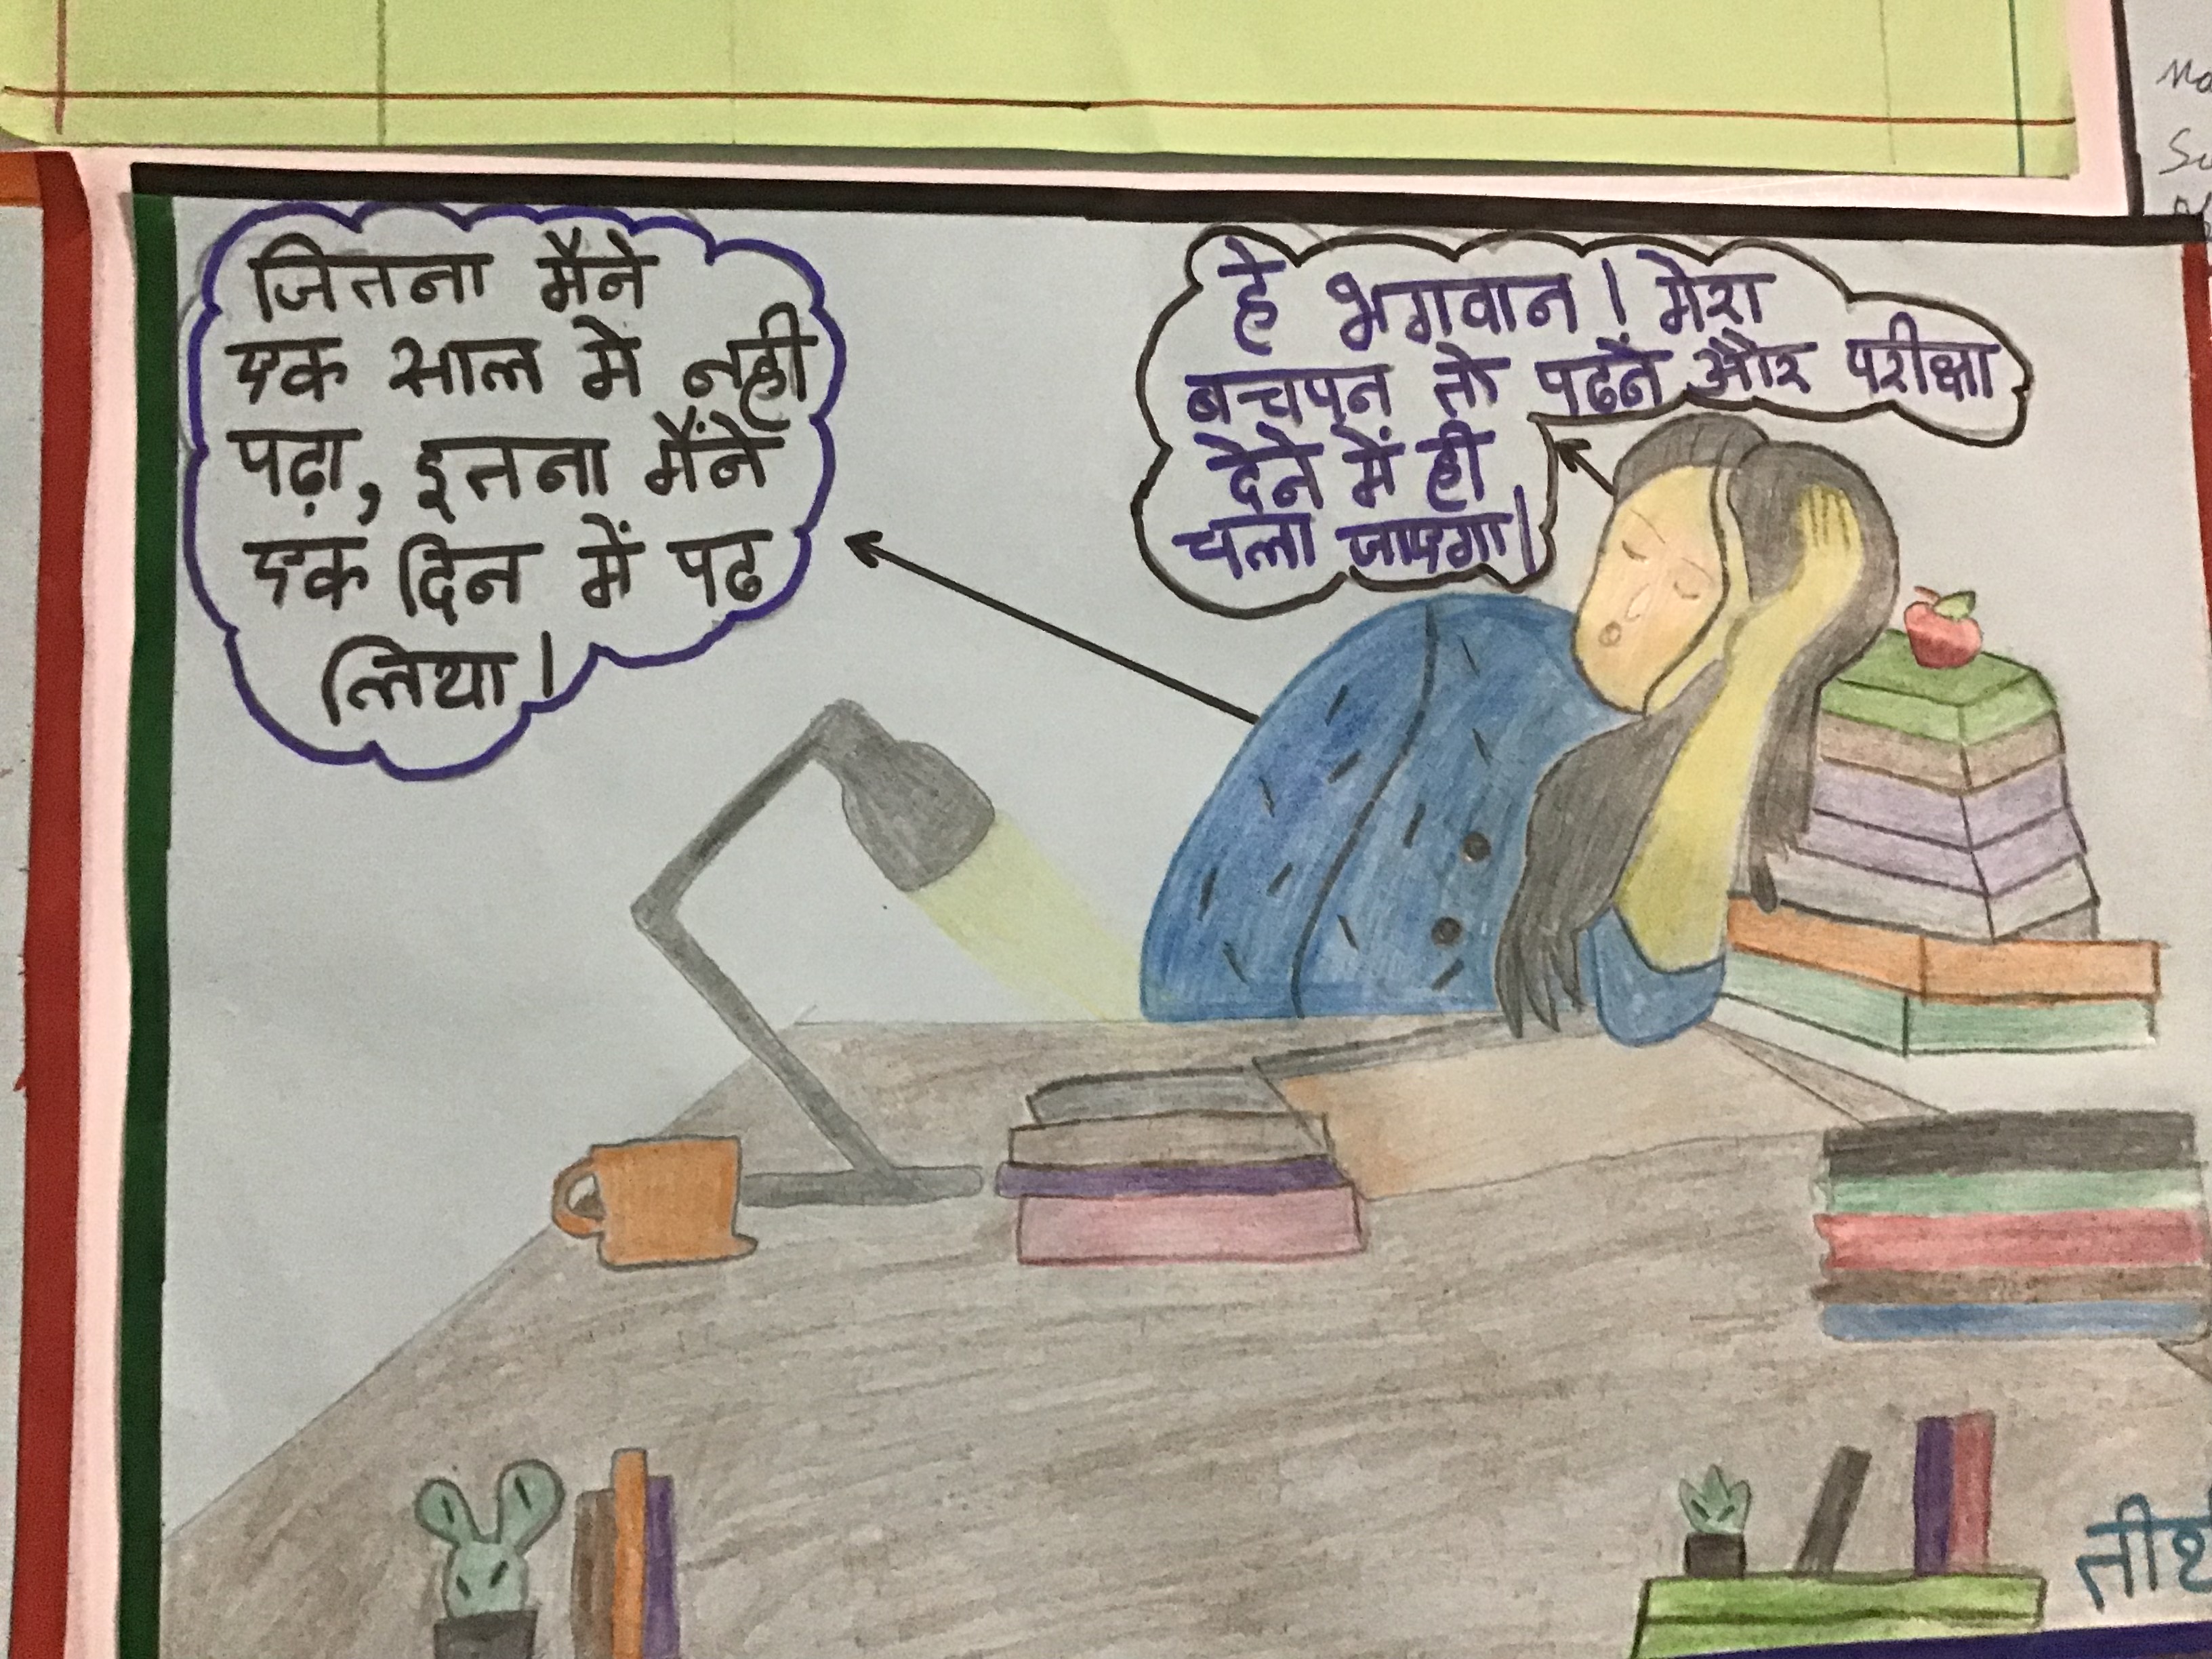 जितना मैने
एक साल मे नही
पढ़ा, इतना मैंने
एक दिन में पढ
लिया।
हे भगवान! मेरा
बचपन तो पढने और परीक्षा
देने में ही
चला जाएगा।